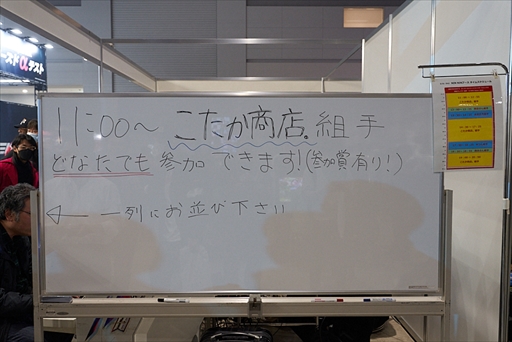 11:00～ こたか商店.組手
どなたでも参加できます!(参加賞有り!)
← 一列にお並び下さい
αテスト